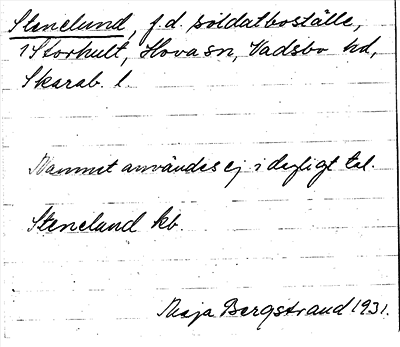 Stenelund, f.d. soldatboställe,
i Storhult, Hova sn, Vadsbo hd,
Skarab. l.
Namnet användes ej i dagligt tal.
Steneland kb.
Maja Bergstrand 1931.